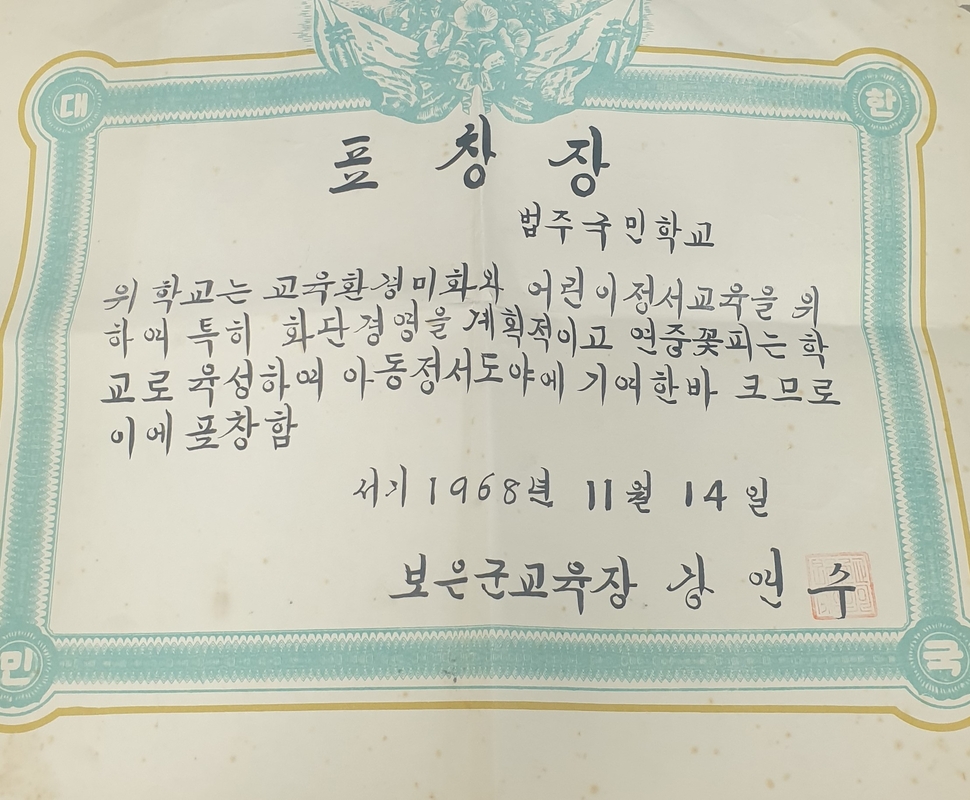 대 한
표 창 장
법주국민학교
위 학교는 교육환경미화와 어린이정서교육을 위
하여 특히 화단경영을 계획적이고 연중꽃피는 학
교로 육성하여 아동정서도야에 기여한바 크므로
이에 표창함
서기 1968년 11월 14일
보은군교육장 강 연 수
민 국